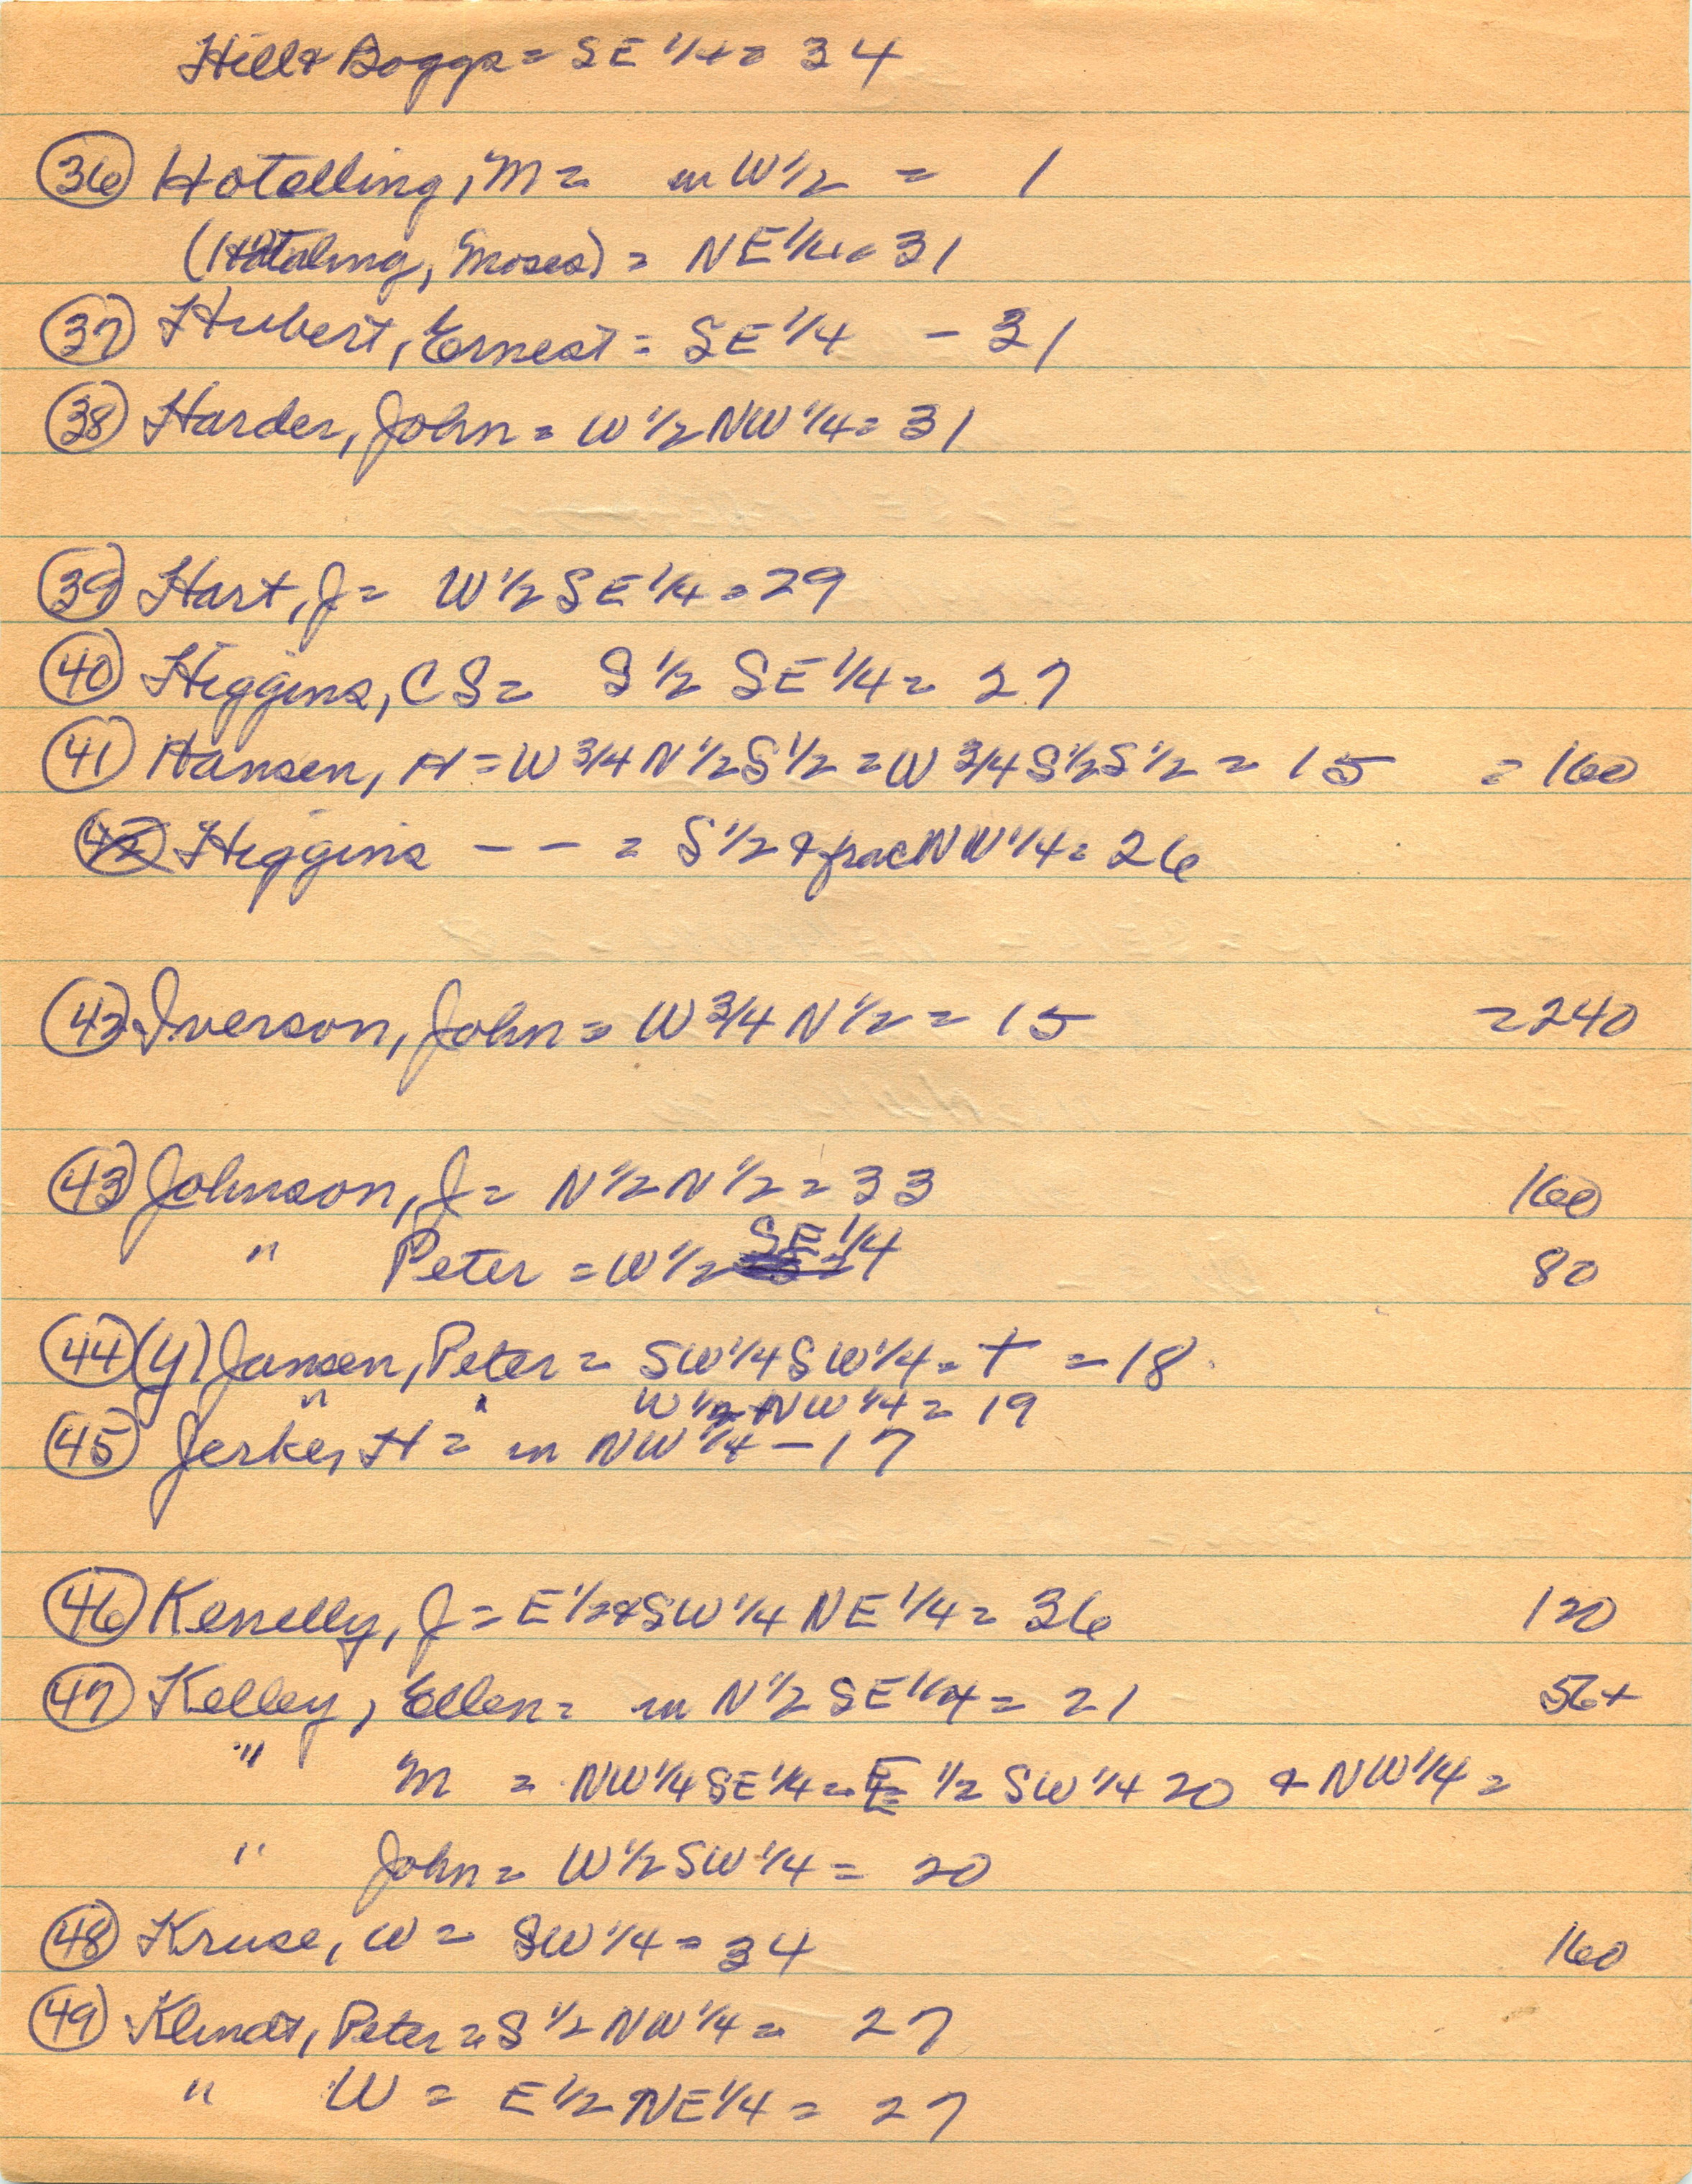 Hill & Boggs = SE 1/4 = 34
36 Hotelling, M = in W 1/2 = 1
(Hotaling, Moses) = NE 1/4 = 31
37 Hubert, Ernest = SE 1/4 - 31
38 Harder, John = W 1/2 NW 1/4 = 31
39 Hart, J = W 1/2 SE 1/4 = 29
40 Higgins, CS = S 1/2 SE 1/4 = 27
41 Hansen, H = W 3/4 N 1/2 S 1/2 = W 3/4 S 1/2 S 1/2 = 15 = 160
42 Higgins - - = S 1/2 & frac NW 1/4 = 26
42 Iverson, John = W 3/4 N 1/2 = 15 = 240
43 Johnson, J = N 1/2 N 1/2 = 33 160
" Peter = W 1/2 SE 1/4 80
44 (y) Jansen, Peter = SW 1/4 SW 1/4 = + = 18
" " W 1/2 NW 1/4 = 19
45 Jerke, H = in NW 1/4 - 17
46 Kenelly, J = E 1/2 & SW 1/4 NE 1/4 = 36 120
47 Kelley, Ellen = in N 1/2 SE 1/4 = 21 56+
" M = NW 1/4 SE 1/4 = E 1/2 SW 1/4 20 & NW 1/4 =
" John = W 1/2 SW 1/4 = 20
48 Kruse, W = SW 1/4 = 34 160
49 Klindt, Peter = S 1/2 NW 1/4 = 27
" W = E 1/2 NE 1/4 = 27